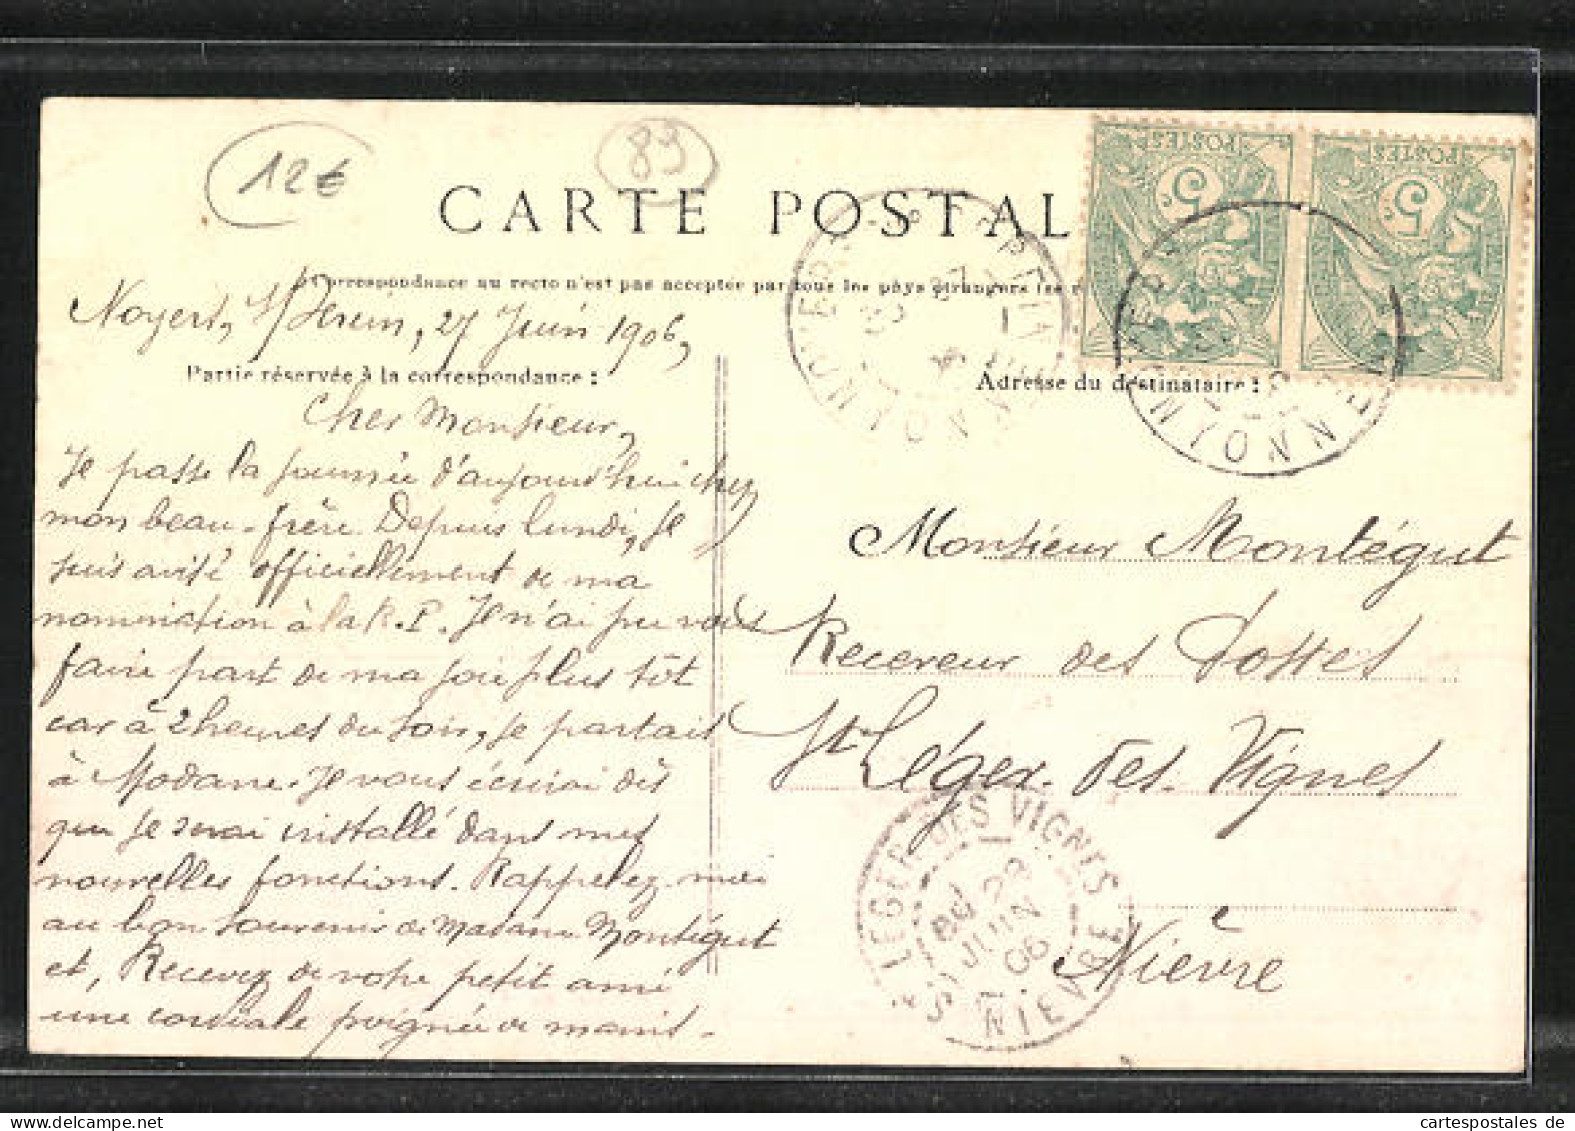 12€
89
CARTE POSTALE
La Correspondance au recto n'est pas acceptée par tous les pays étrangers
POSTES
5
POSTES
5
Noyers, s/Serein, 27 Juin 1906,
Partie réservée à la correspondance :
Adresse du destinataire :
Cher Monsieur,
Je passe la journée d'aujourd'hui chez
mon beau-frère. Depuis lundi, je
suis avisé officiellement de ma
nomination à la R.P. Je n'ai pu vous
faire part de ma joie plus tôt
car à 2 heures du soir, je partais
à Modane. Je vous écrirai dès
que je serai installé dans mes
nouvelles fonctions. Rappelez-moi
au bon souvenir de Madame Montégut
et, Recevez de votre petit ami
une cordiale poignée de mains.
Monsieur Montégut
Receveur des Postes
St Léger-des-Vignes
Nièvre
LEGER-DES-VIGNES
28
JUIN
06
NIEVRE
YONNE
YONNE
cartespostales de